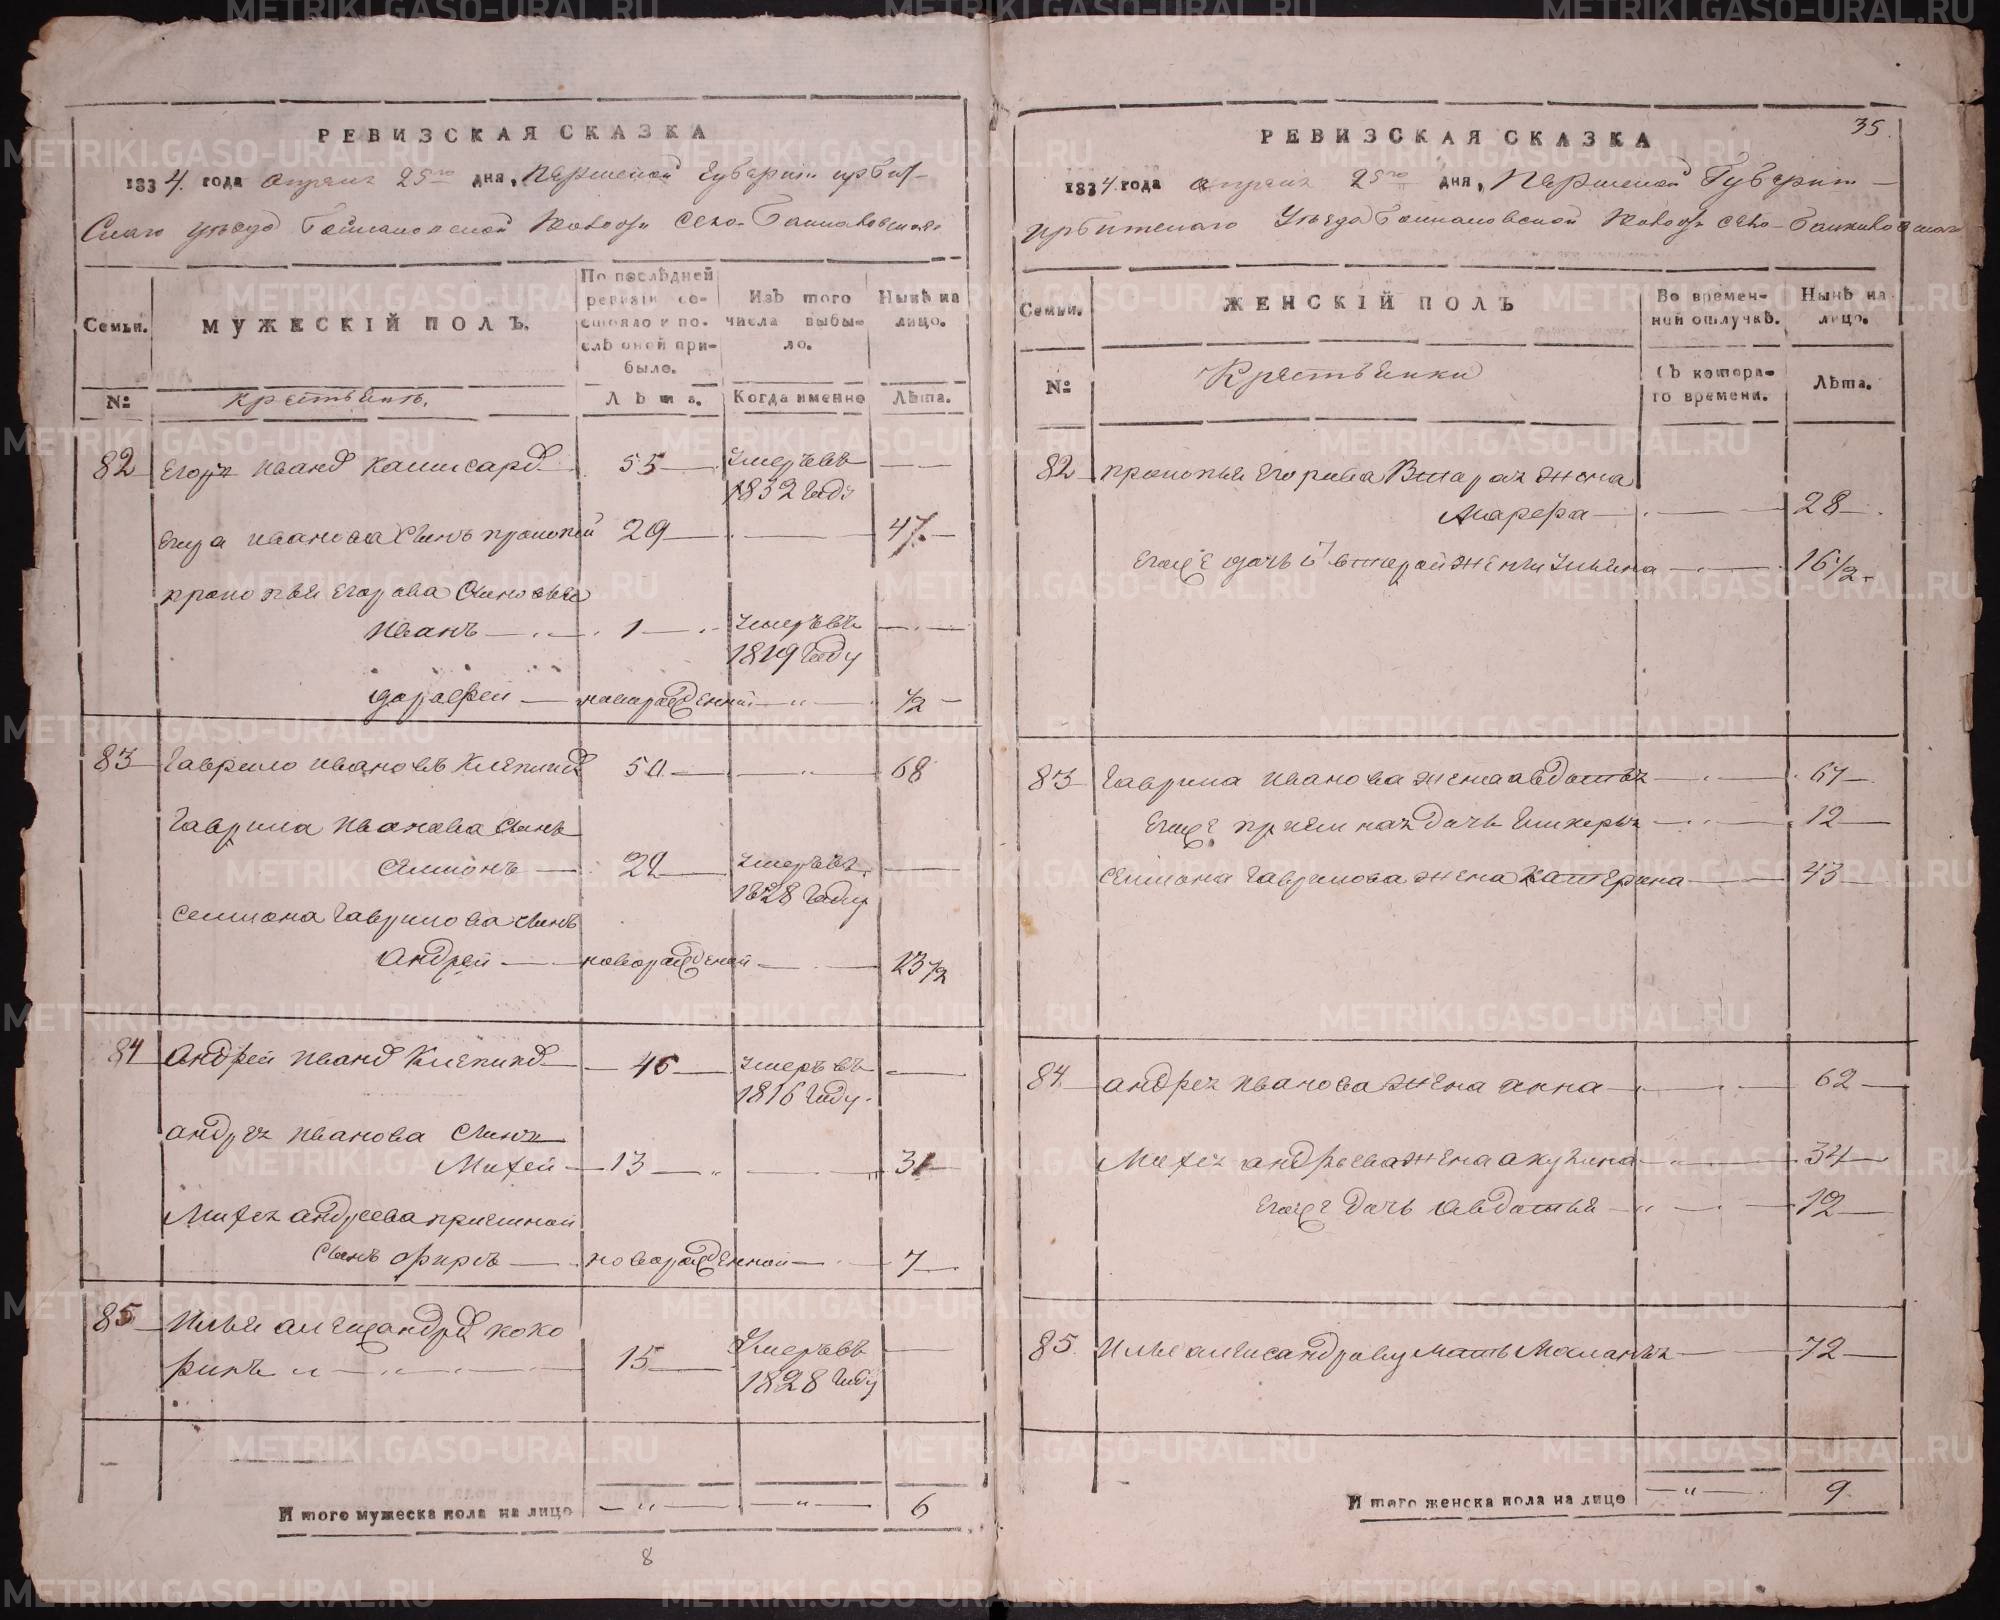 РЕВИЗСКАЯ СКАЗКА
1834. года апреля 25го дня, Пермской Губернии Ирбит-
скаго уезда волости село-
Семьи.
МУЖЕСКІЙ ПОЛЪ.
По послѣдней
ревизіи со-
стояло и по-
слѣ оной при-
было.
Изъ того
числа выбы-
ло.
Нынѣ на
лицо.
№
крестьяне.
Лѣта.
Когда именно
Лѣта.
82 Егоръ Иванов 55 умеръ въ
1832 году
Егора Иванова сынъ прокопей 29 47
прокопья Егорова сыновья
Иванъ 1 умеръ въ
1819 году
дорофей новорожденной 1/2
83 Гаврило Ивановъ 50 68
Гаврила Иванова сынъ
Семионъ 22 умеръ въ
1828 году
Семиона Гаврилова сынъ
Андрей новорожденой 13 1/2
84 Андрей Иванов 46 умеръ въ
1816 году.
андрея Иванова сынъ
Михей 13 31
Михея андреева приемной
сынъ фирсъ новорожденной 7
85 Илья александров коко
ринъ 15 умеръ въ
1828 году
Итого мужеска пола на лицо 6
8
35.
РЕВИЗСКАЯ СКАЗКА
1834. года апреля 25го дня, Пермской Губернии
ирбитскаго уезда волости село-
Семьи.
ЖЕНСКІЙ ПОЛЪ
Во времен-
ной отлучкѣ.
Нынѣ на
лицо.
№
Крестьянки
Съ котора-
го времени.
Лѣта.
82 прокопья Егорова втарая жена
Марфа 28
Егоже дочь от вторай жены Ульяна 16 1/2
83 Гаврила Иванова жена авдотья 67
Егоже приемная дочь Гликерья 12
семиона Гаврилова жена катерина 43
84 андрея Иванова жена анна 62
Михея андреева жена акулина 34
Егоже дочь авдотья 12
85. Илье александрову мать Маланья 72
Итого женска пола на лицо 9
METRIKI.GASO-URAL.RU